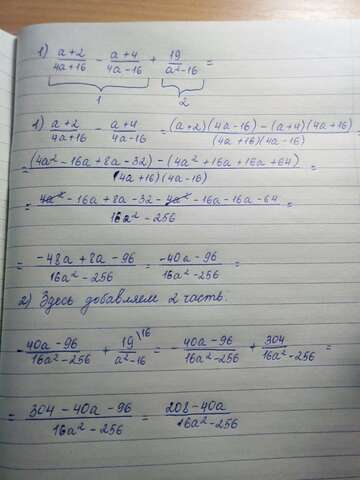 1) (a+2)/(4a+16) - (a+4)/(4a-16) + 19/(a²-16) =
1 2
1) (a+2)/(4a+16) - (a+4)/(4a-16) = ((a+2)(4a-16) - (a+4)(4a+16))/((4a+16)(4a-16))
= ((4a²-16a+8a-32) - (4a²+16a+16a+64))/((4a+16)(4a-16)) =
= (4a²-16a+8a-32-4a²-16a-16a-64)/(16a²-256) =
= (-48a+8a-96)/(16a²-256) = (-40a-96)/(16a²-256) =
2) Здесь добавляем 2 часть.
-(40a-96)/(16a²-256) + 19\16/(a²-16) = -(40a-96)/(16a²-256) + 304/(16a²-256) =
= (304-40a-96)/(16a²-256) = (208-40a)/(16a²-256)